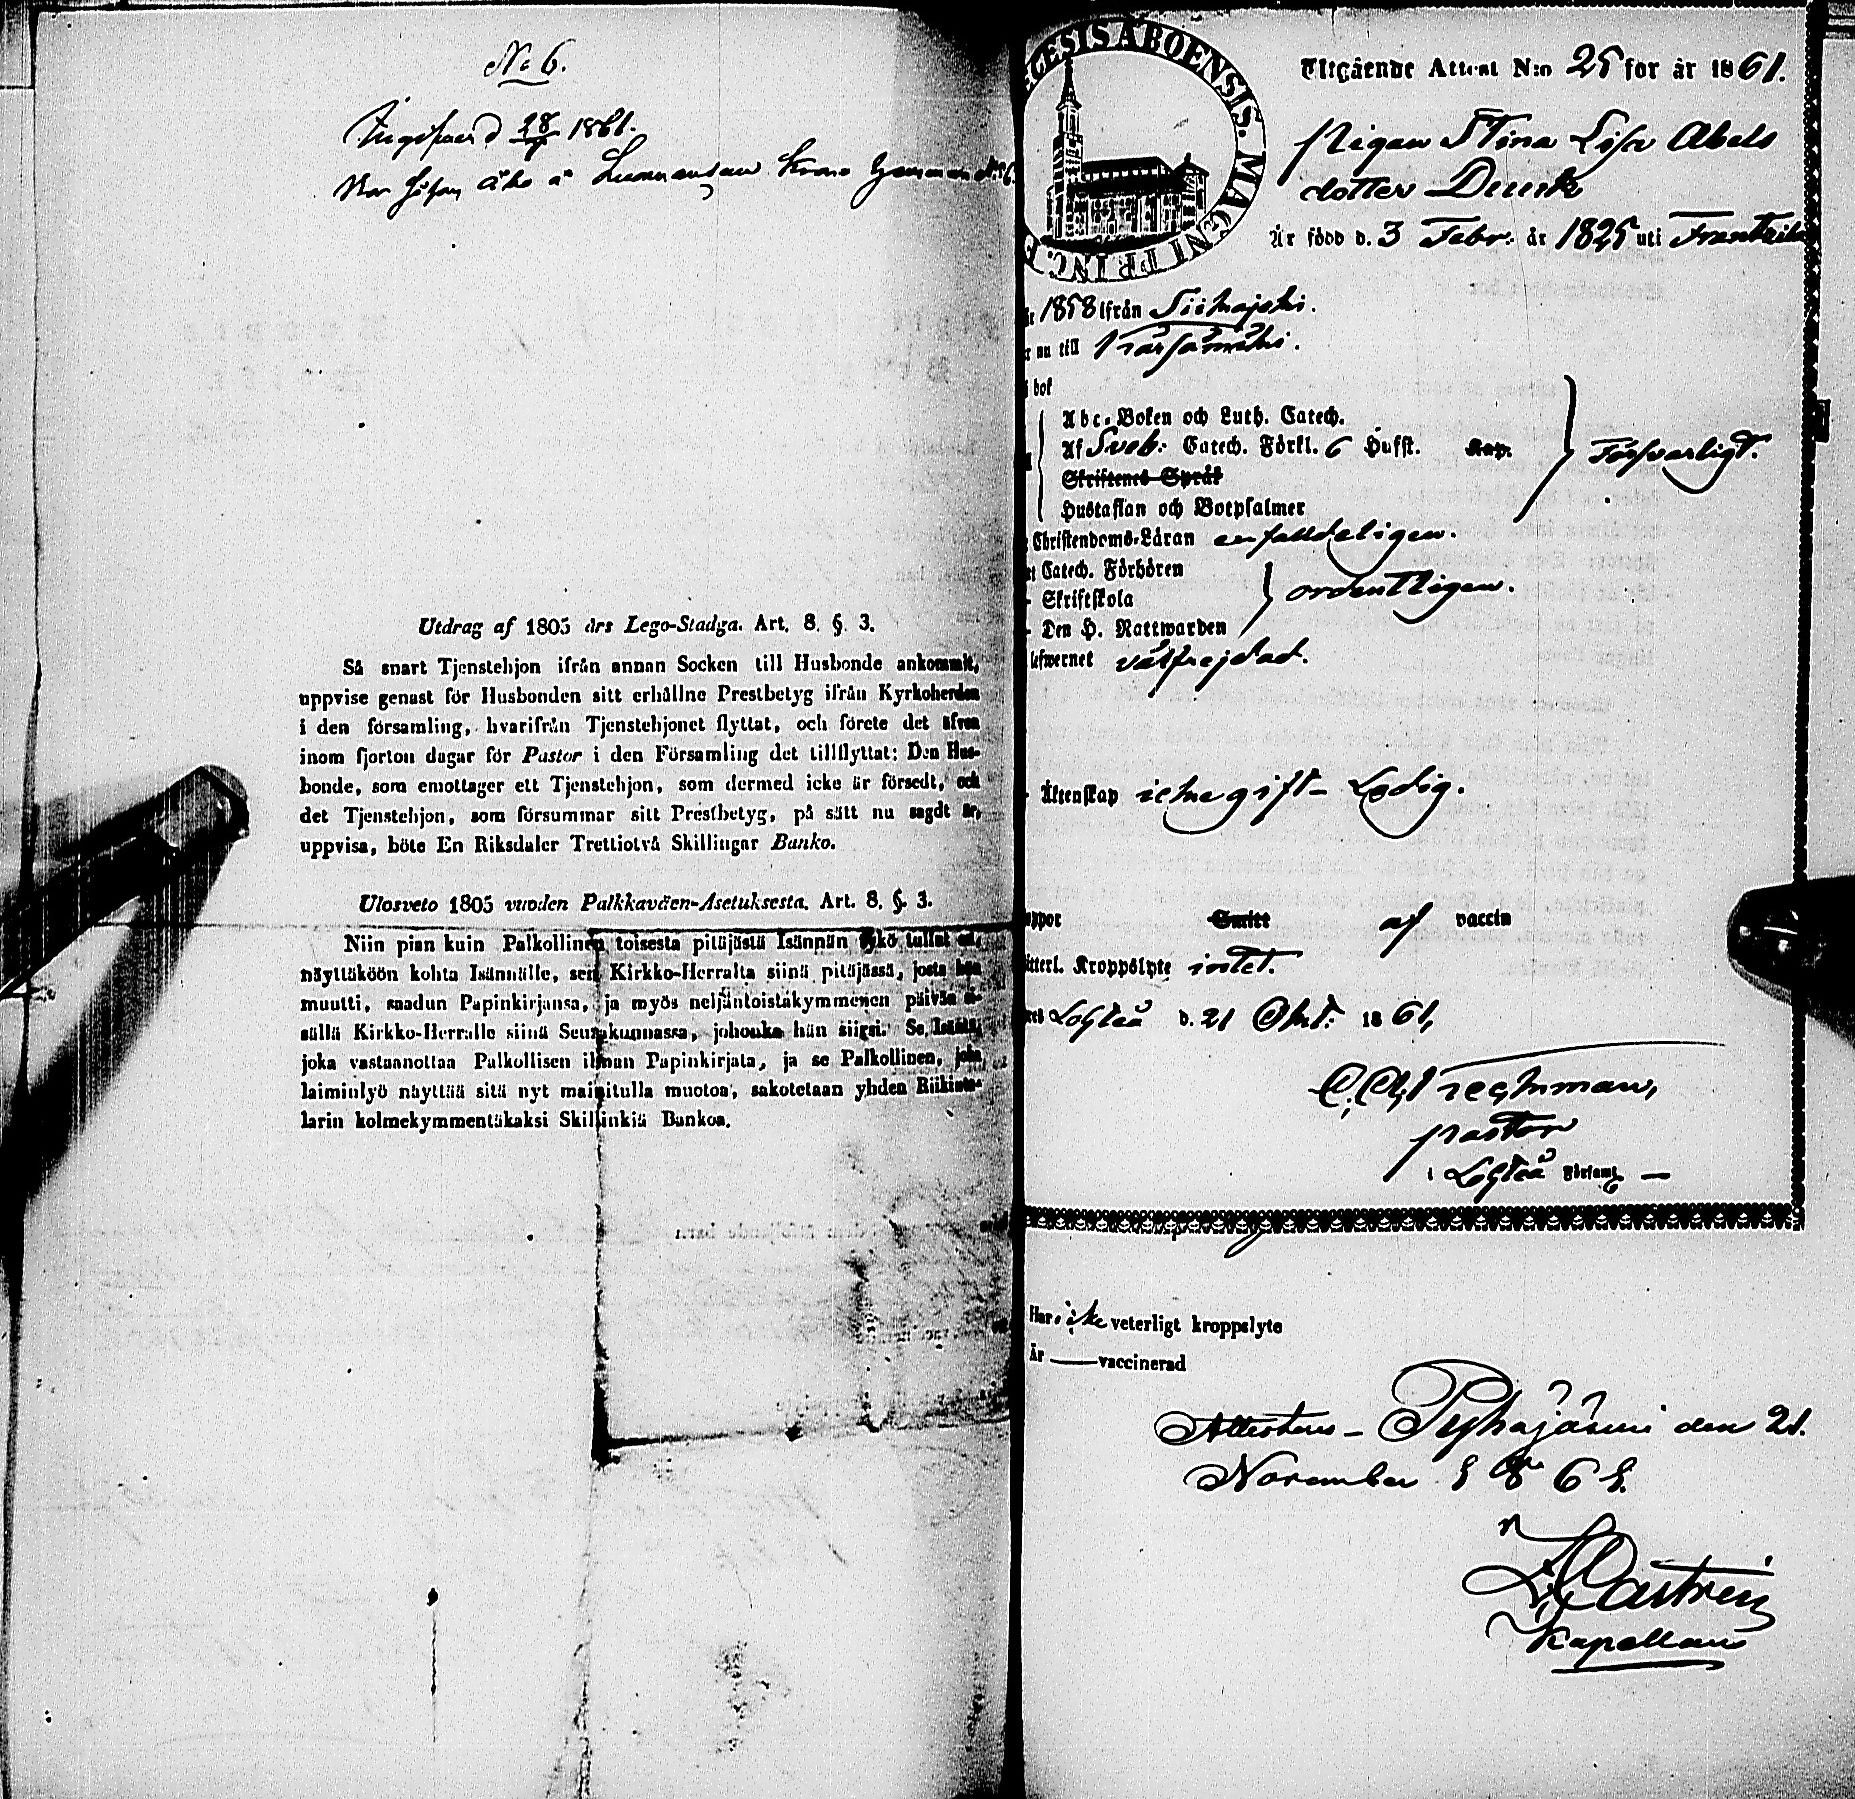 No 6.
28 1861.
Utdrag af 1805 års Lego-Stadga. Art. 8. §. 3.
Så snart Tjenstehjon ifrån annan Socken till Husbonde ankommit,
uppvise genast för Husbonden sitt erhållne Prestbetyg ifrån Kyrkoherden
i den församling, hvarifrån Tjenstehjonet flyttat, och förete det äfven
inom fjorton dagar för Pastor i den Församling det tillflyttat: Den Hus-
bonde, som emottager ett Tjenstehjon, som dermed icke är försedt, och
det Tjenstehjon, som försummar sitt Prestbetyg, på sätt nu sagdt är,
uppvisa, böte En Riksdaler Trettiotvå Skillingar Banko.
Ulosveto 1805 vuoden Palkkaväen-Asetuksesta. Art. 8. §. 3.
Niin pian kuin Palkollinen toisesta pitäjästä Isännän tykö tullut on,
näyttäköön kohta Isännälle, sen Kirkko-Herralta siinä pitäjässä, josta hän
muutti, saadun Papinkirjansa, ja myös neljäntoistäkymmenen päivän si-
sällä Kirkko-Herralle siinä Seurakunnassa, johonka hän siirsi. Se, Isäntä,
joka vastaanottaa Palkollisen ilman Papinkirjata, ja se Palkollinen, joka
laiminlyö näyttää sitä nyt mainitulla muotoa, sakotetaan yhden Riikinta-
larin kolmekymmentäkaksi Skillinkiä Bankoa.
ECESIS ABOENSIS. MAGNI PRINC. F
Utgående Attest N:o 25 for år 1861.
Pigan Stina Lisa Abels
dotter
Är född d. 3 Febr. år 1825 uti
1858 ifrån Siikajoki.
nu till Kärsämäki.
bok
Abc-Boken och Luth. Catech.
Af Sveb. Catech. Förkl. 6 Hufst. Kap. Försvarligt.
Skriftenes Språk
Hustaflan och Botpsalmer
Christendoms-Läran enfalldeligen.
Catech. Förhören
Skriftskola ordentligen.
Den H. Nattwarden
lefwernet välfrejdad.
Äktenskap icke gift - Ledig.
koppor Smitt af vaccin
Kroppslyte intet.
Lohteå d. 21 Okt. 1861,
pastor
i Lohteå Församl.
Har icke veterligt kroppslyte
Är — vaccinerad
Attesteras - Pyhäjärvi den 21.
November 1861.
Castrén
Kapellan